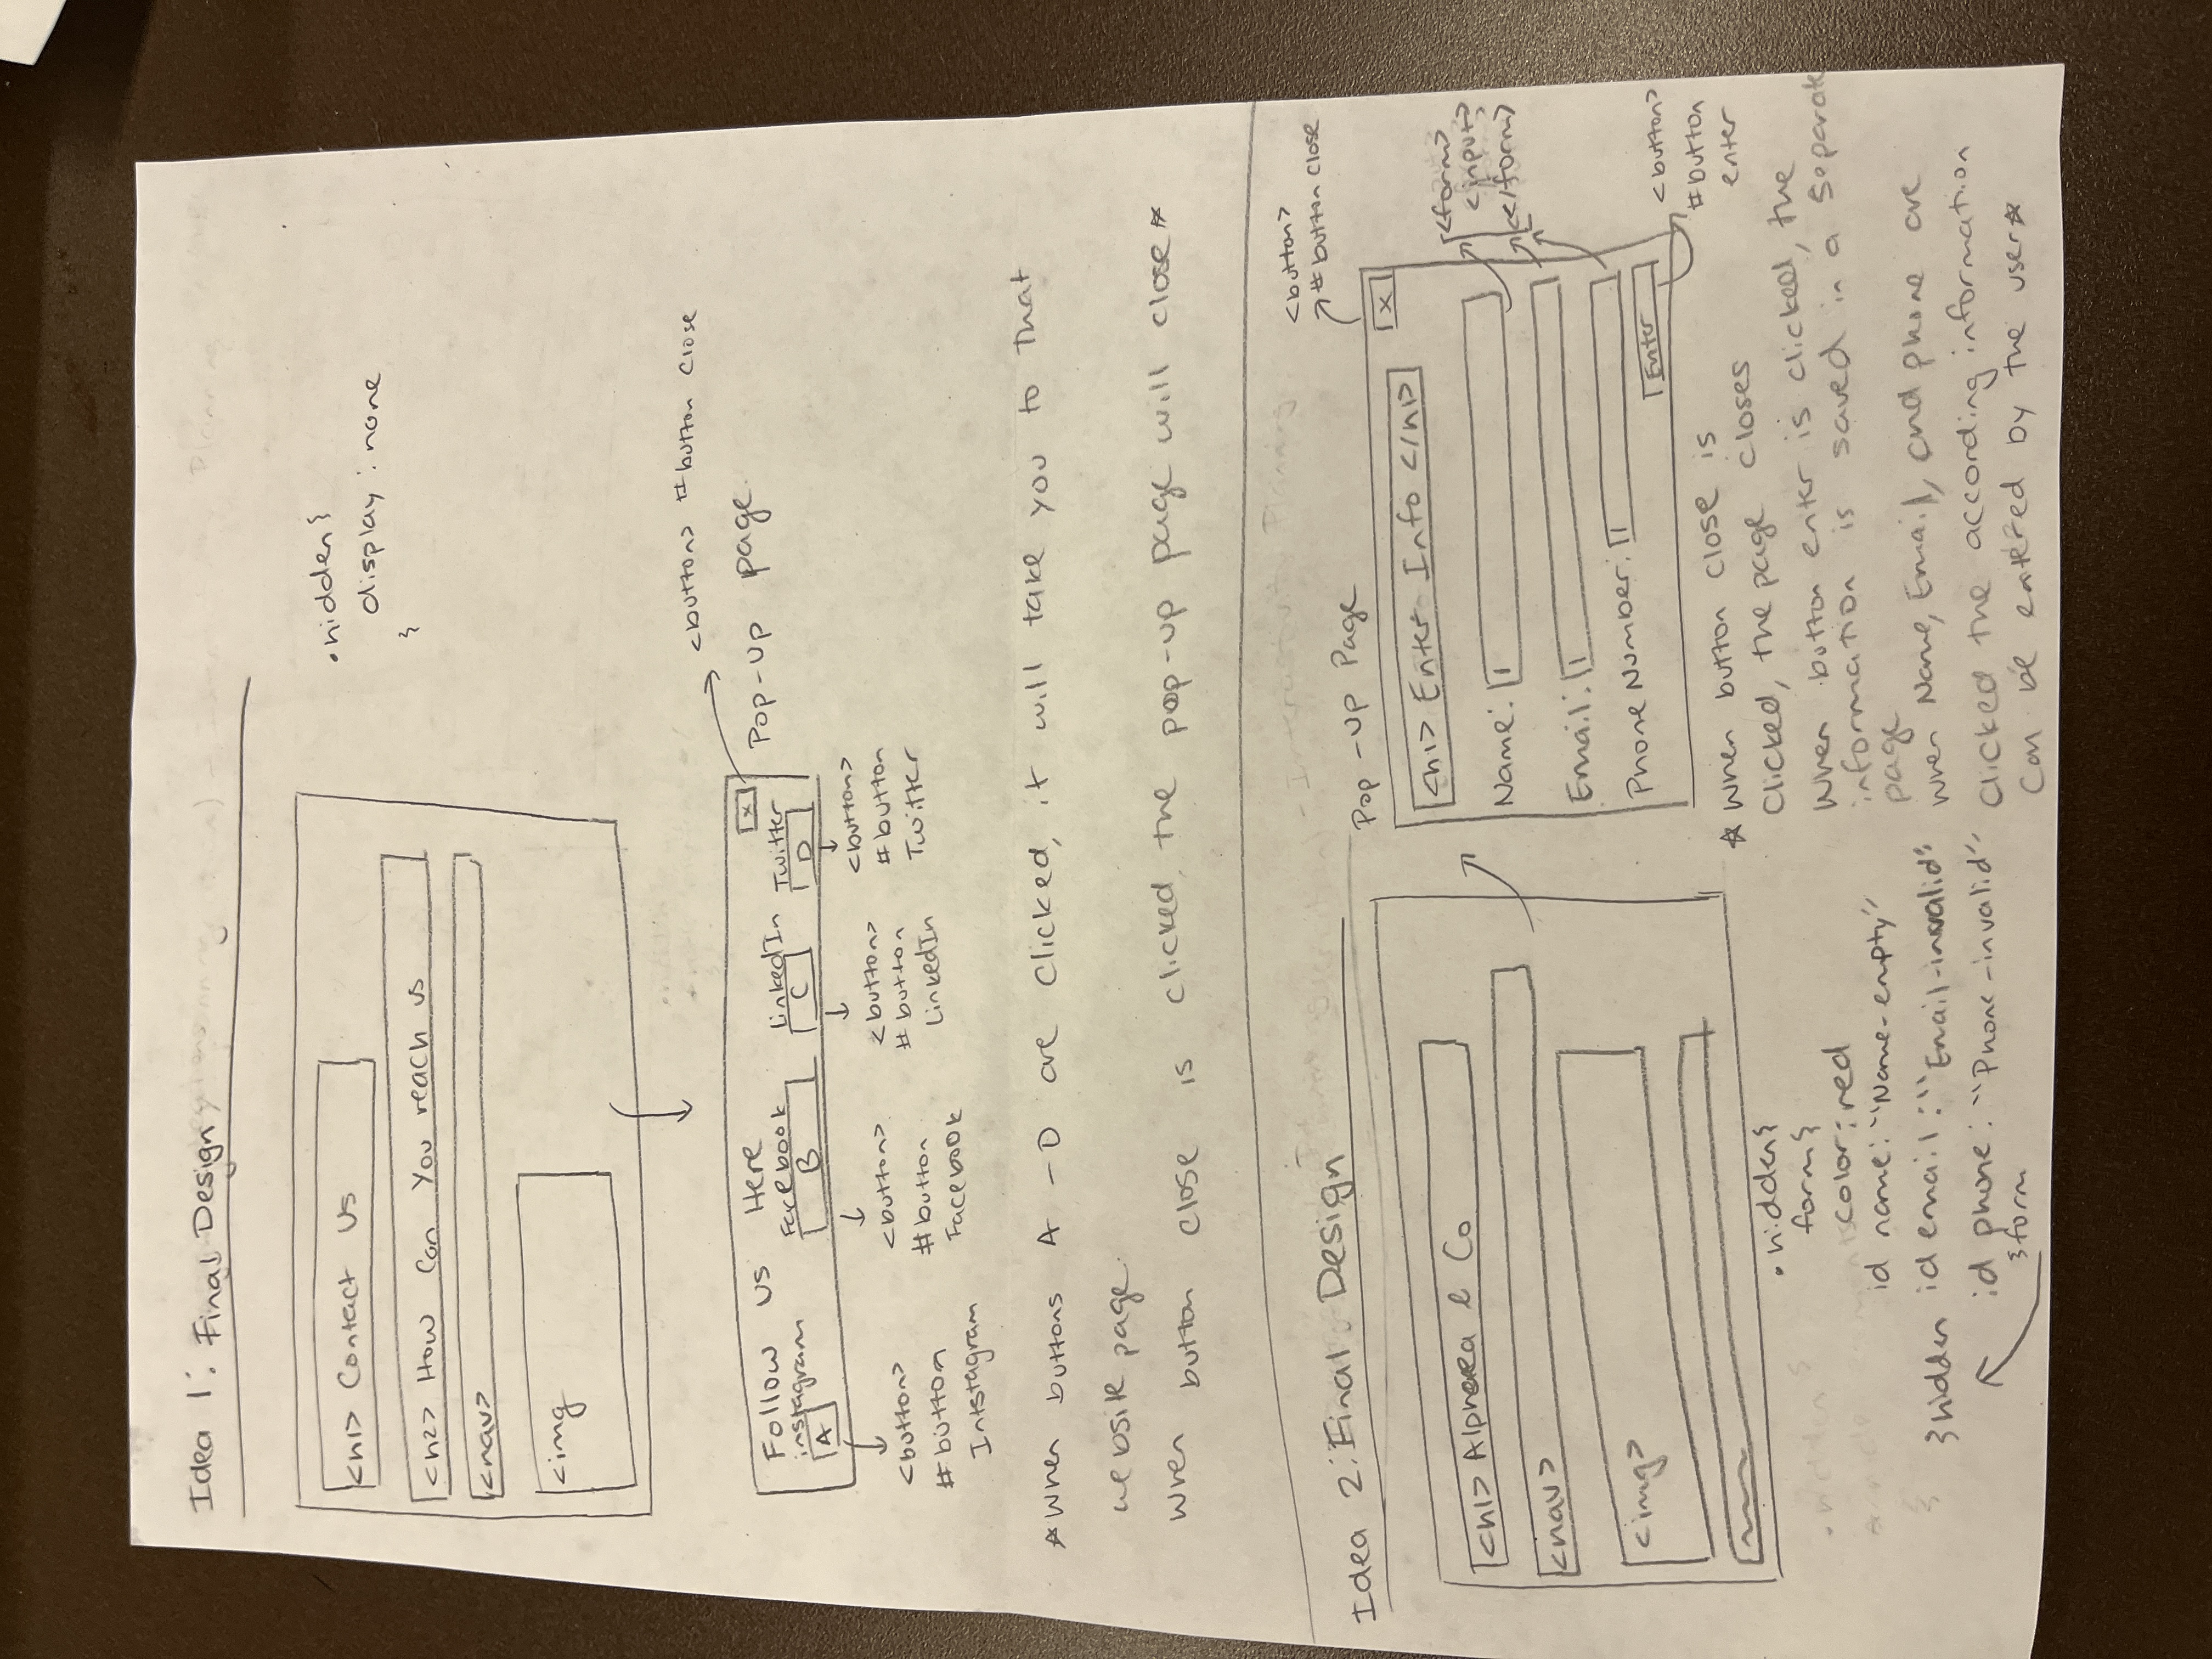 Idea 1: Final Design
<h1> Contact Us
<h2> How Can You reach us
<nav>
<img
.hidden{
display : none
}
<button> #button close
Pop-up page.
Follow us Here
x
instagram
A
Facebook
B
LinkedIn
C
Twitter
D
<button>
#button
Intstagram
<button>
#button
Facebook
<button>
#button
LinkedIn
<button>
#button
Twitter
☆When buttons A - D are clicked, it will take you to that
website page.
When button close is clicked, the pop-up page will close☆
Idea 2: Final Design
<h1> Alphaea & Co
<nav>
<img>
.hidden{
form{
color: red
id name: "Name-empty"
}hidden id email: "Email-invalid"
id phone: "Phone-invalid"
}form
Pop-up Page
<button>
#button close
x
<h1> Enter Info </h1>
Name:
Email:
Phone Number:
Enter
<form>
<input>
</form>
<button>
#button
enter
☆ When button close is
clicked, the page closes
When button enter is clicked, the
information is saved in a separate
page
When Name, Email, and phone are
clicked the according information
can be entered by the user☆